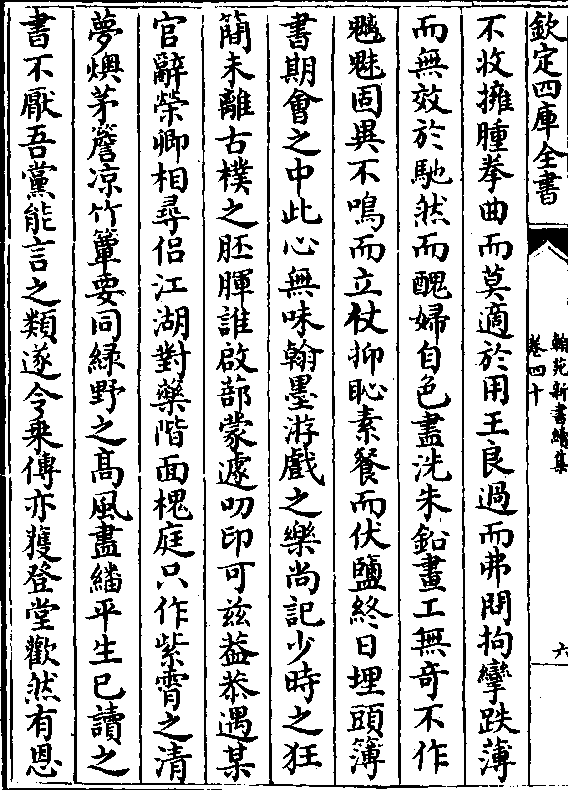 欽定四庫全書
翰苑新書續集
卷四十
六
不收擁腫拳曲而莫適於用王良過而弗閗拘攣跌薄
而無效於馳然而醜婦自色盡洗朱鉛畫工無竒不作
魑魅固異不鳴而立仗抑恥素餐而伏鹽終日埋頭簿
書期會之中此心無味翰墨游戲之樂尚記少時之狂
簡未離古樸之胚腪誰啟蔀蒙遽叨印可兹葢恭遇某
官辭榮卿相尋侣江湖對藥階面槐庭只作紫霄之清
夢燠茅簷凉竹簟要同緑野之髙風盡繙平生已讀之
書不厭吾黨能言之類遂令乗傳亦獲登堂歡然有恩